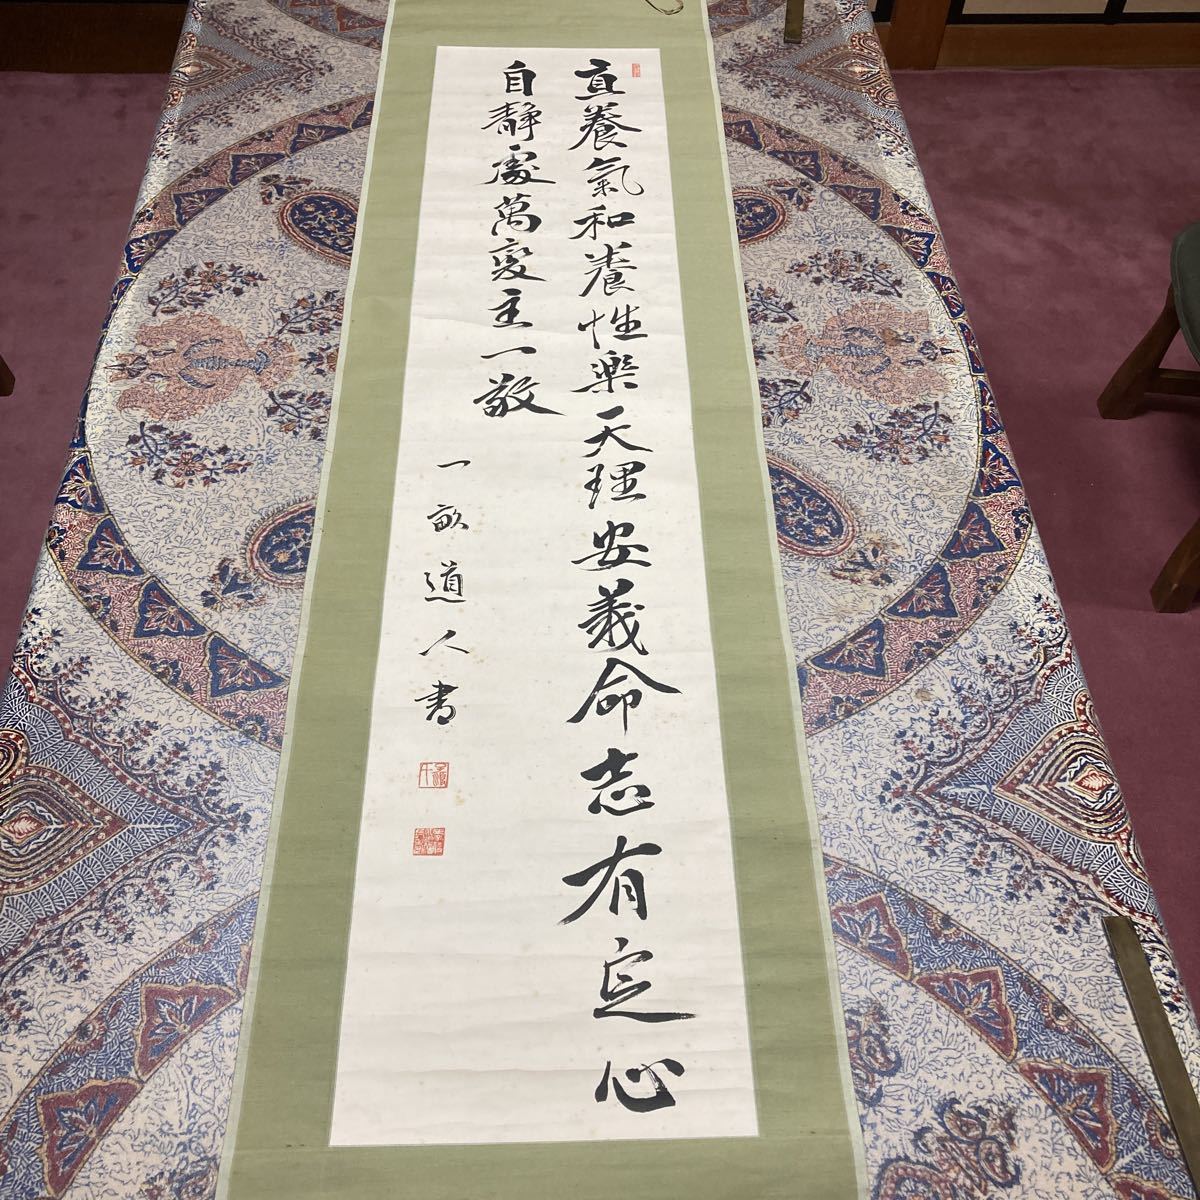 直養氣和養性樂天理安義命志有定心
自靜處萬变主一敬
一畝道人書